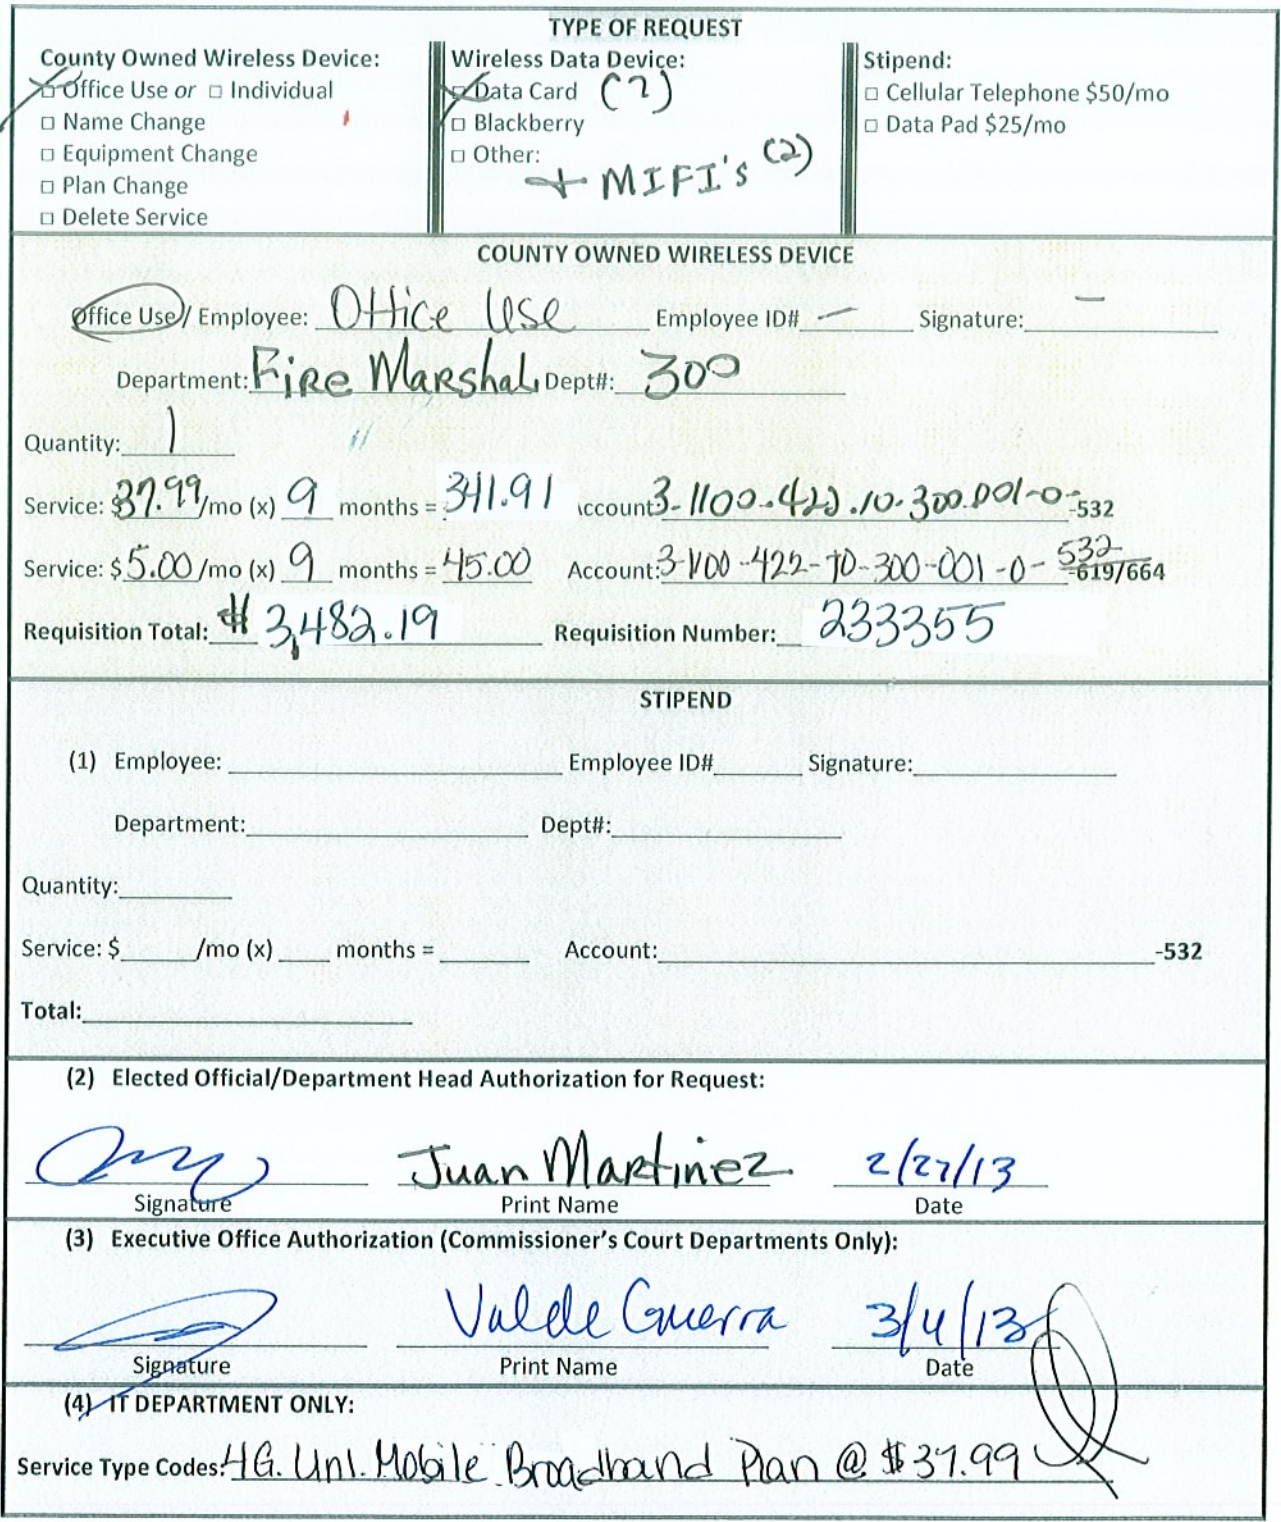 TYPE OF REQUEST
County Owned Wireless Device:
□ Office Use or □ Individual
□ Name Change
□ Equipment Change
□ Plan Change
□ Delete Service
Wireless Data Device:
□ Data Card (7)
□ Blackberry
□ Other:
+ MIFI's (2)
Stipend:
□ Cellular Telephone $50/mo
□ Data Pad $25/mo
COUNTY OWNED WIRELESS DEVICE
Office Use/ Employee: Office Use Employee ID# — Signature: —
Department: Fire Marshal Dept#: 300
Quantity: 1
Service: $37.99/mo (x) 9 months = 341.91 Account: 3-1100-422.10-300.001-0- -532
Service: $5.00/mo (x) 9 months = 45.00 Account: 3-1100-422-10-300-001-0- 532 -619/664
Requisition Total: # 3,482.19 Requisition Number: 233355
STIPEND
(1) Employee: Employee ID# Signature:
Department: Dept#:
Quantity:
Service: $ /mo (x) months = Account: -532
Total:
(2) Elected Official/Department Head Authorization for Request:
Juan Martinez 2/27/13
Signature Print Name Date
(3) Executive Office Authorization (Commissioner's Court Departments Only):
Valde Guerra 3/4/13
Signature Print Name Date
(4) IT DEPARTMENT ONLY:
Service Type Codes: 4G. Unl. Mobile Broadband Plan @ $37.99